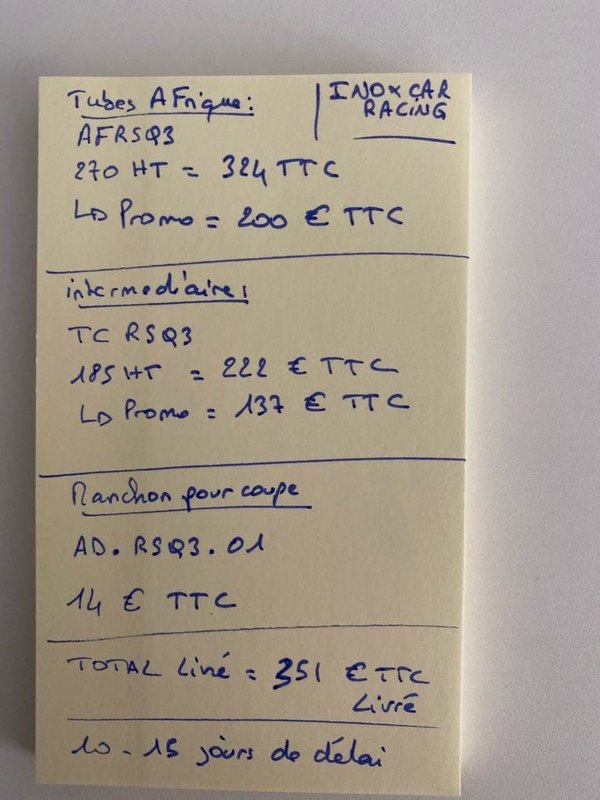 Tubes AFrique :
INOXCAR
RACING
AFRSQ3
270 HT = 324 TTC
↳ Promo = 200 € TTC
intermediaire :
TC RSQ3
185 HT = 222 € TTC
↳ Promo = 137 € TTC
Manchon pour coupe
AD. RSQ3. 01
14 € TTC
TOTAL Livré = 351 € TTC
Livré
10 - 15 jours de délai